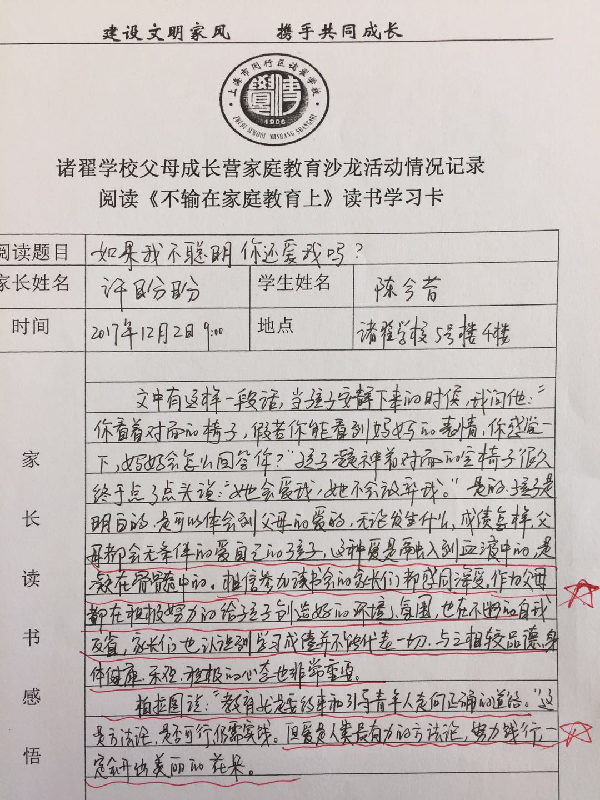 建设文明家风 携手共同成长
上海市闵行区诸翟学校
1906
诸翟学校父母成长营家庭教育沙龙活动情况记录
阅读《不输在家庭教育上》读书学习卡
阅读题目 如果我不聪明你还爱我吗？
家长姓名 许盼盼 学生姓名 陈今昔
时间 2017年12月2日 9:00 地点 诸翟学校5号楼4楼
家长读书感悟
文中有这样一段话，当孩子安静下来的时候，我问他："
你看着对面的椅子，假若你能看到妈妈的表情，你感觉一
下，妈妈会怎么回答你？"孩子凝神着对面的空椅子很久
终于点了点头说："她会爱我，她不会放弃我。"是的，孩子是
明白的，是可以体会到父母的爱的，无论发生什么，成绩怎样，父
母都会无条件的爱自己的孩子，这种爱是融入到血液中的，是
藏在骨髓中的。相信参加读书会的家长们都感同深受，作为父母
都在积极努力的给孩子创造好的环境、氛围，也在不断的自我
反省，家长们也认识到学习成绩并不能代表一切，与之相较品德、身
体健康、乐观、积极的心态也非常重要。
柏拉图说："教育就是要约束和引导青年人走向正确的道路。"这
是方法论，是否可行仍需实践。但爱是人类最有力的方法论，努力践行，一
定会开出美丽的花朵。